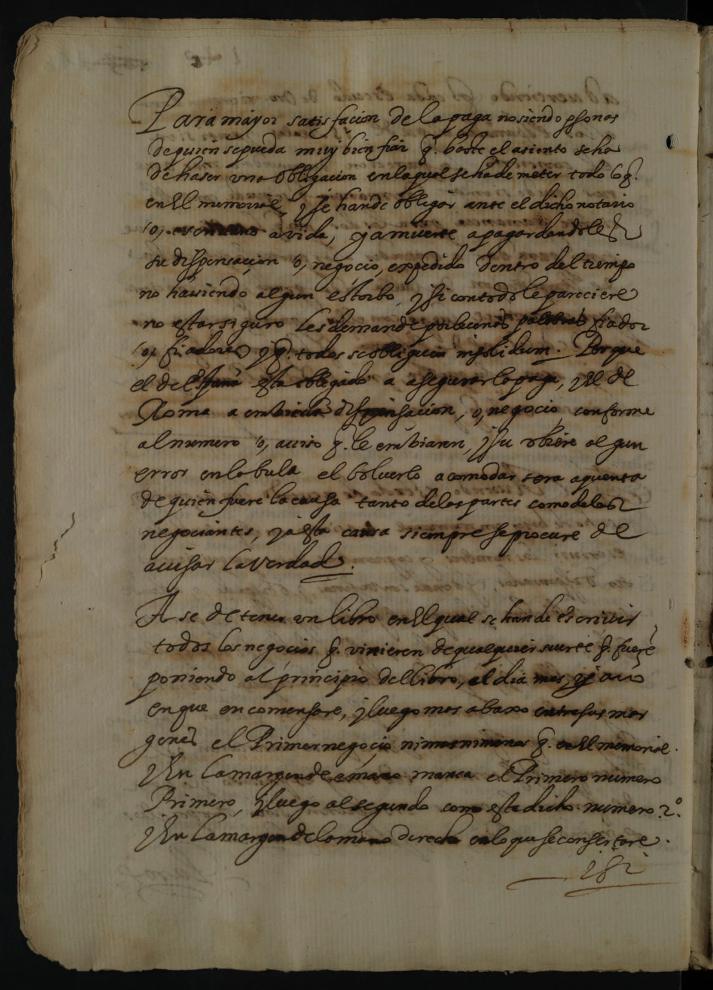 Para mayor satisfacion de la paga no siendo psonas
de quien se pueda muy bien fiar q. baste el asiento se ha
de haser una obligacion en la qual se ha de meter todo lo q.
en El memorial, y se han de obligar ante el dicho notario
o, a vida, y a muerte a pagar dandoles
su dispensacion o, negocio, expedido dentro del tiempo
no haviendo algun estorbo, y si con todo le pareciere
no estar siguro les demande fiador
o, fiadores y q. todos se obliguen insolidum. Porque
el de España esta obligado a asegurar la paga, y El de
Roma a embiar la dispensacion, o, negocio conforme
al numero o, aviso q. le embiaren, y si obiere algun
error en la bula el bolverlo a comodar sera a quenta
de quien fuere la causa tanto de las partes como de los
negociantes, y a esta causa siempre se procure de
avisar la verdad.
A se de tener un libro en El qual se han de escrivir
todos los negocios q. vinieren de qualquier suerte q. fuere
poniendo al principio del libro, el dia mes, y año
en que en comensare, y luego mas abaxo entre las mar
genes el Primer negocio q. en El memorial.
Y En la margen de mano manca el Primero numero
Primero, y luego al segundo como esta dicho numero 2º.
Y En la margen de la mano derecha en lo que se consertare.